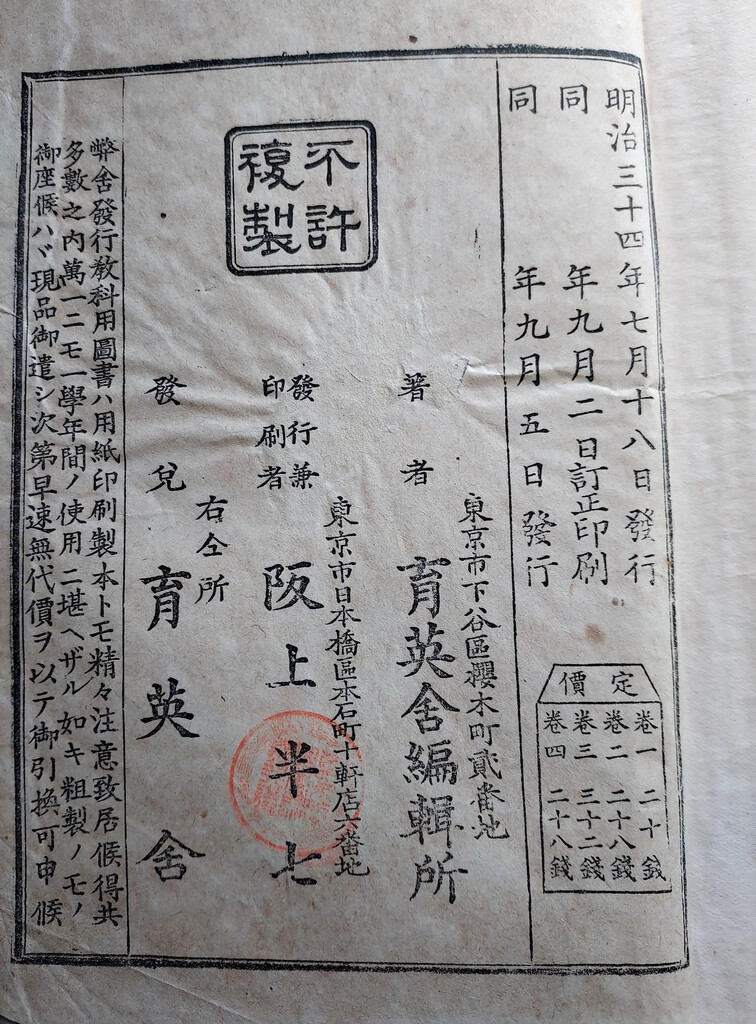 明治三十四年七月十八日發行
同年九月二日訂正印刷
同年九月五日發行
定價
卷一 二十錢
卷二 二十八錢
卷三 三十二錢
卷四 二十八錢
不許
複製
東京市下谷區櫻木町貳番地
著者 育英舍編輯所
東京市日本橋區本石町十軒店六番地
發行兼
印刷者
阪上半七
右仝所
發兌 育英舍
弊舍發行敎科用圖書ハ用紙印刷製本トモ精々注意致居候得共
多數之內萬一ニモ一學年間ノ使用ニ堪ヘザル如キ粗製ノモノ
御座候ハヾ現品御遣シ次第早速無代價ヲ以テ御引換可申候